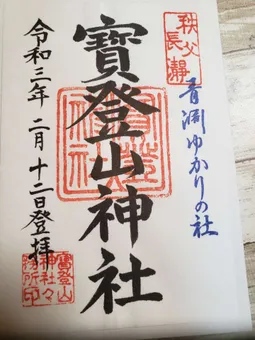 秩父
長瀞
青淵ゆかりの社
寳登山神社
令和三年二月十二日登拝
寳登山
神社々
務所印